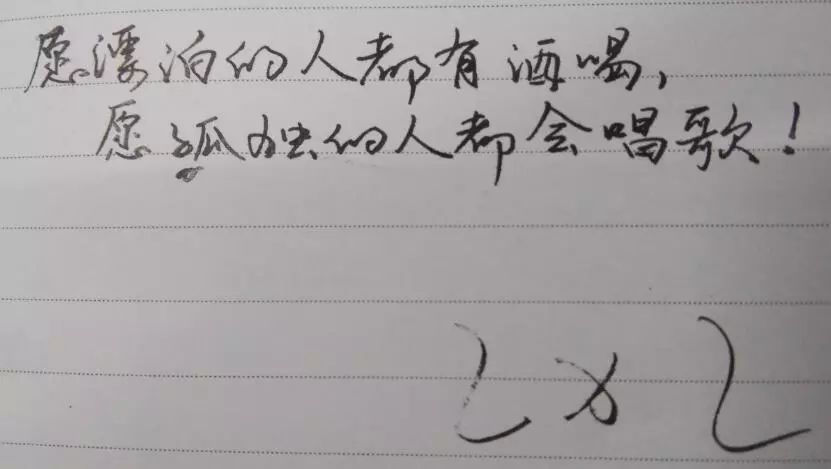 愿漂泊的人都有酒喝,
愿孤独的人都会唱歌!